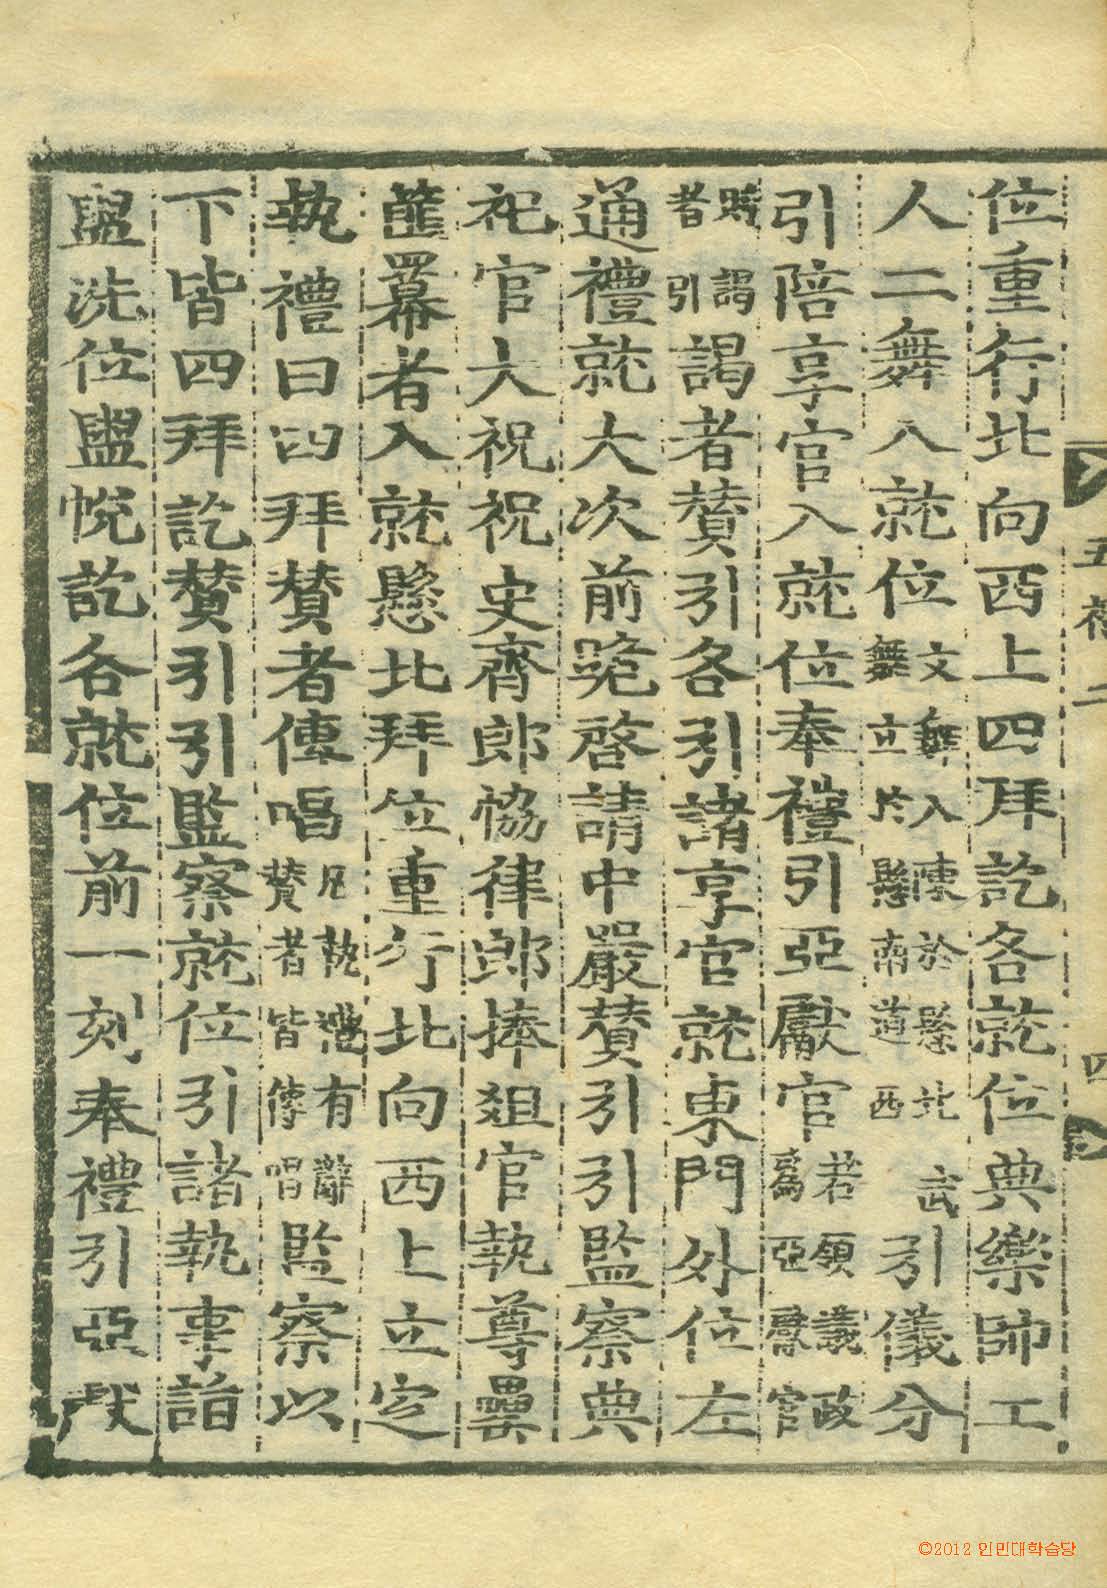 位重行北向西上四拜訖各就位典樂帥工
人二舞入就位文舞入陳於懸北武舞立於懸南道西引儀分
引陪享官入就位奉禮引亞獻官若領議政爲亞獻官
時謁者引謁者贊引各引諸享官就東門外位左
通禮就大次前跪啓請中嚴贊引引監察典
祀官大祝祝史齊郎協律郎捧俎官執尊罍
篚羃者入就懸北拜位重行北向西上立定
執禮曰四拜贊者傳唱凡執禮有辭贊者皆傳唱監察以
下皆四拜訖贊引引監察就位引諸執事詣
盥洗位盥帨訖各就位前一刻奉禮引亞獻
五禮二
四
©2012 인민대학습당